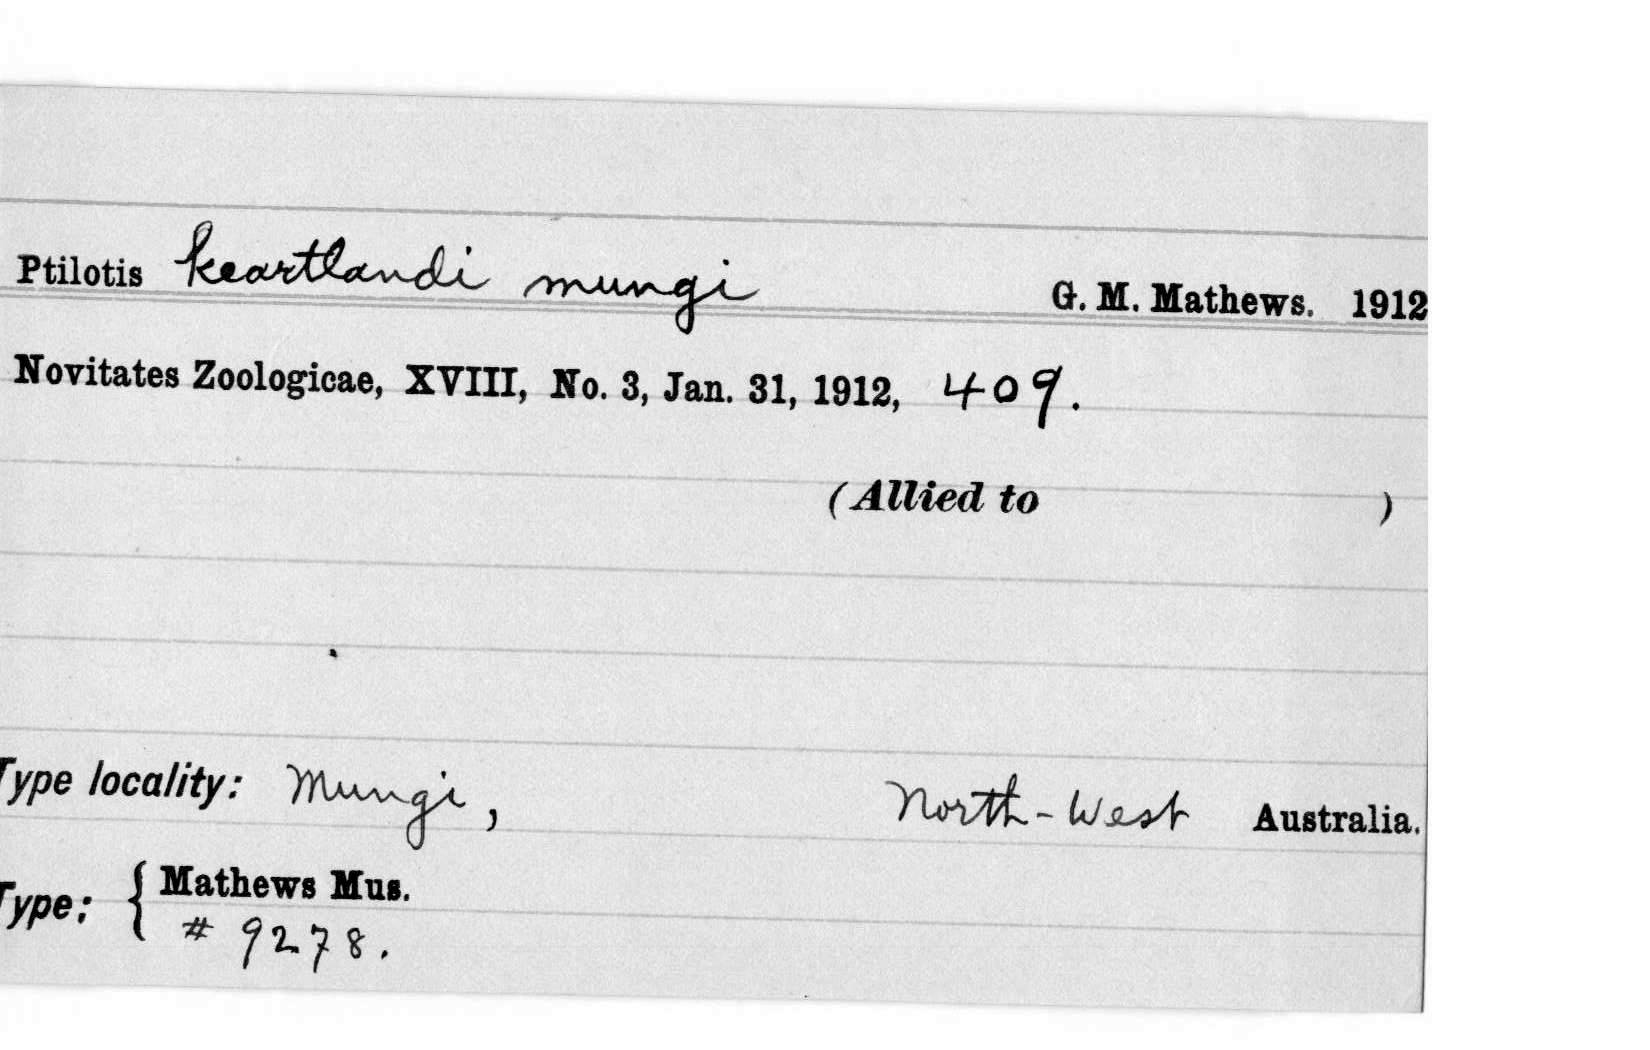 Ptilotis keartlandi mungi G. M. Mathews. 1912
Novitates Zoologicae, XVIII, No. 3, Jan. 31, 1912, 409.
(Allied to )
Type locality: Mungi, North-West Australia.
Type: { Mathews Mus.
# 9278.